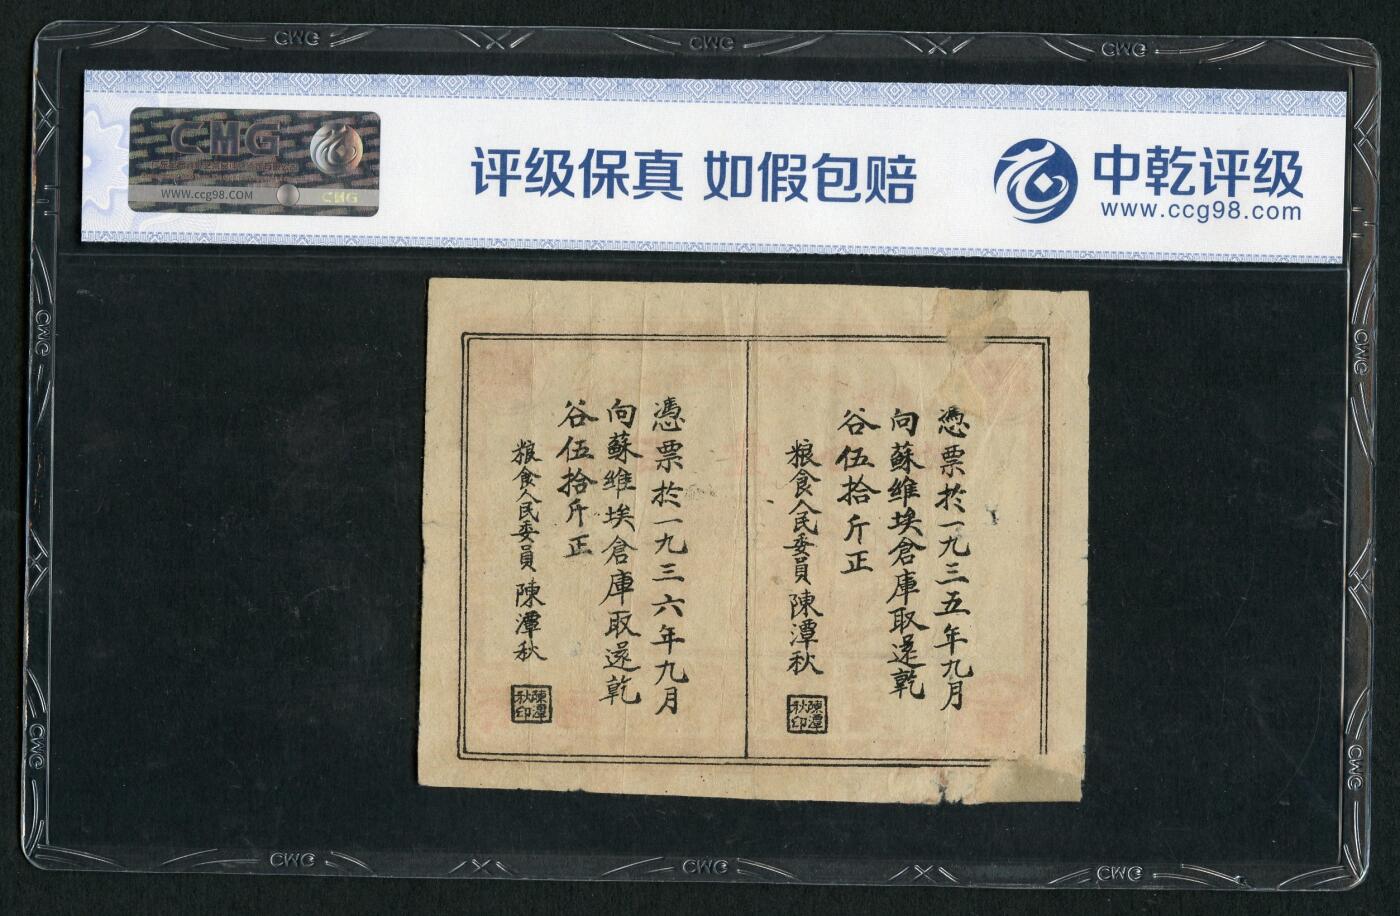 CMG
WWW.ccg98.COM
CMG
评级保真 如假包赔
中乾评级
www.ccg98.com
憑票於一九三五年九月
向蘇維埃倉庫取還乾
谷伍拾斤正
粮食人民委員 陳潭秋
陳潭秋印
憑票於一九三六年九月
向蘇維埃倉庫取還乾
谷伍拾斤正
粮食人民委員 陳潭秋
陳潭秋印